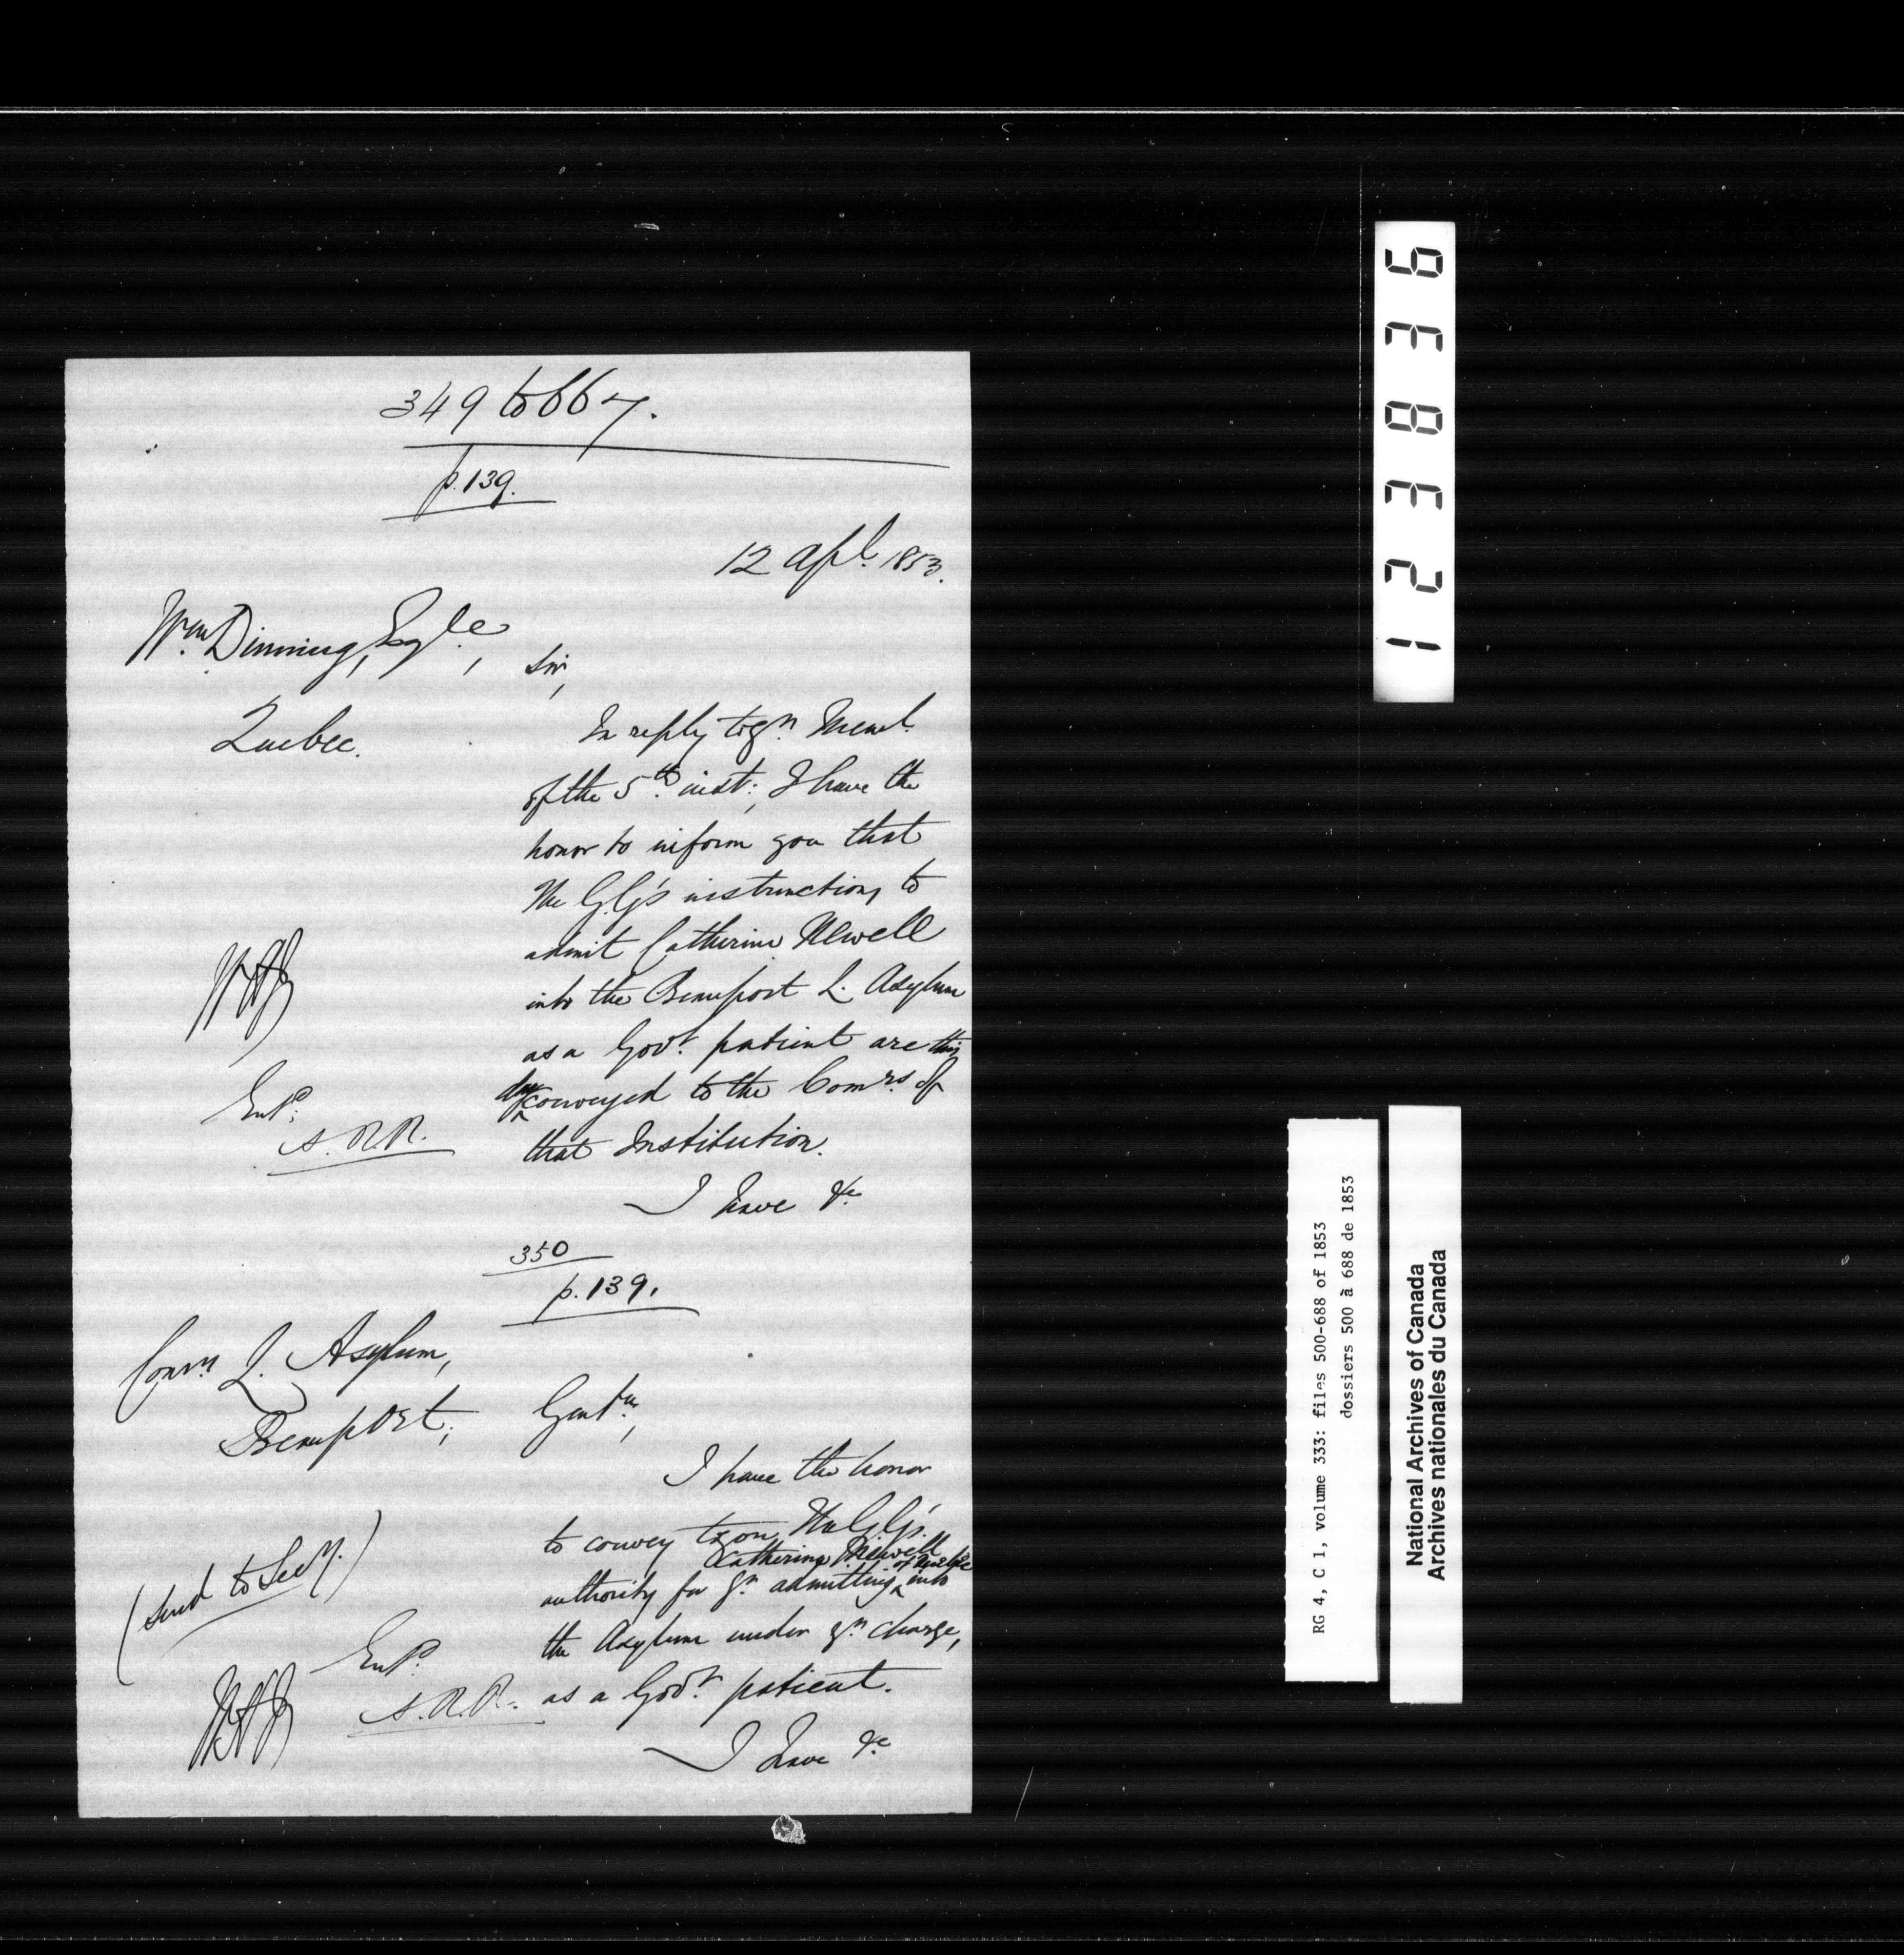 349 to 667.
p. 139.
12 Apl. 1853.
Wm. Dinning, Esqre,
Quebec.
Sir,
In reply to yr. Meml.
of the 5th. inst:, I have the
honor to inform you that
the G.G's instructions to
admit Catherine Newell
into the Beauport L. Asylum
as a Govt. patient are this
day conveyed to the Comrs. of
that Institution.
I have &c
WHG
Entd.
A.R.R.
350
p. 139.
Comrs L. Asylum,
Beauport;
Gentn.,
I have the honor
to convey to you the G.G's.
Catherine Newell of Quebec
authority for yr. admitting ‸ into
the Asylum under yr. charge,
as a Govt. patient.
I have &c
(send to Secy.)
Entd.
A.R.R.
123836
RG 4, C 1, volume 333: files 500-688 of 1853
dossiers 500 à 688 de 1853
National Archives of Canada
Archives nationales du Canada